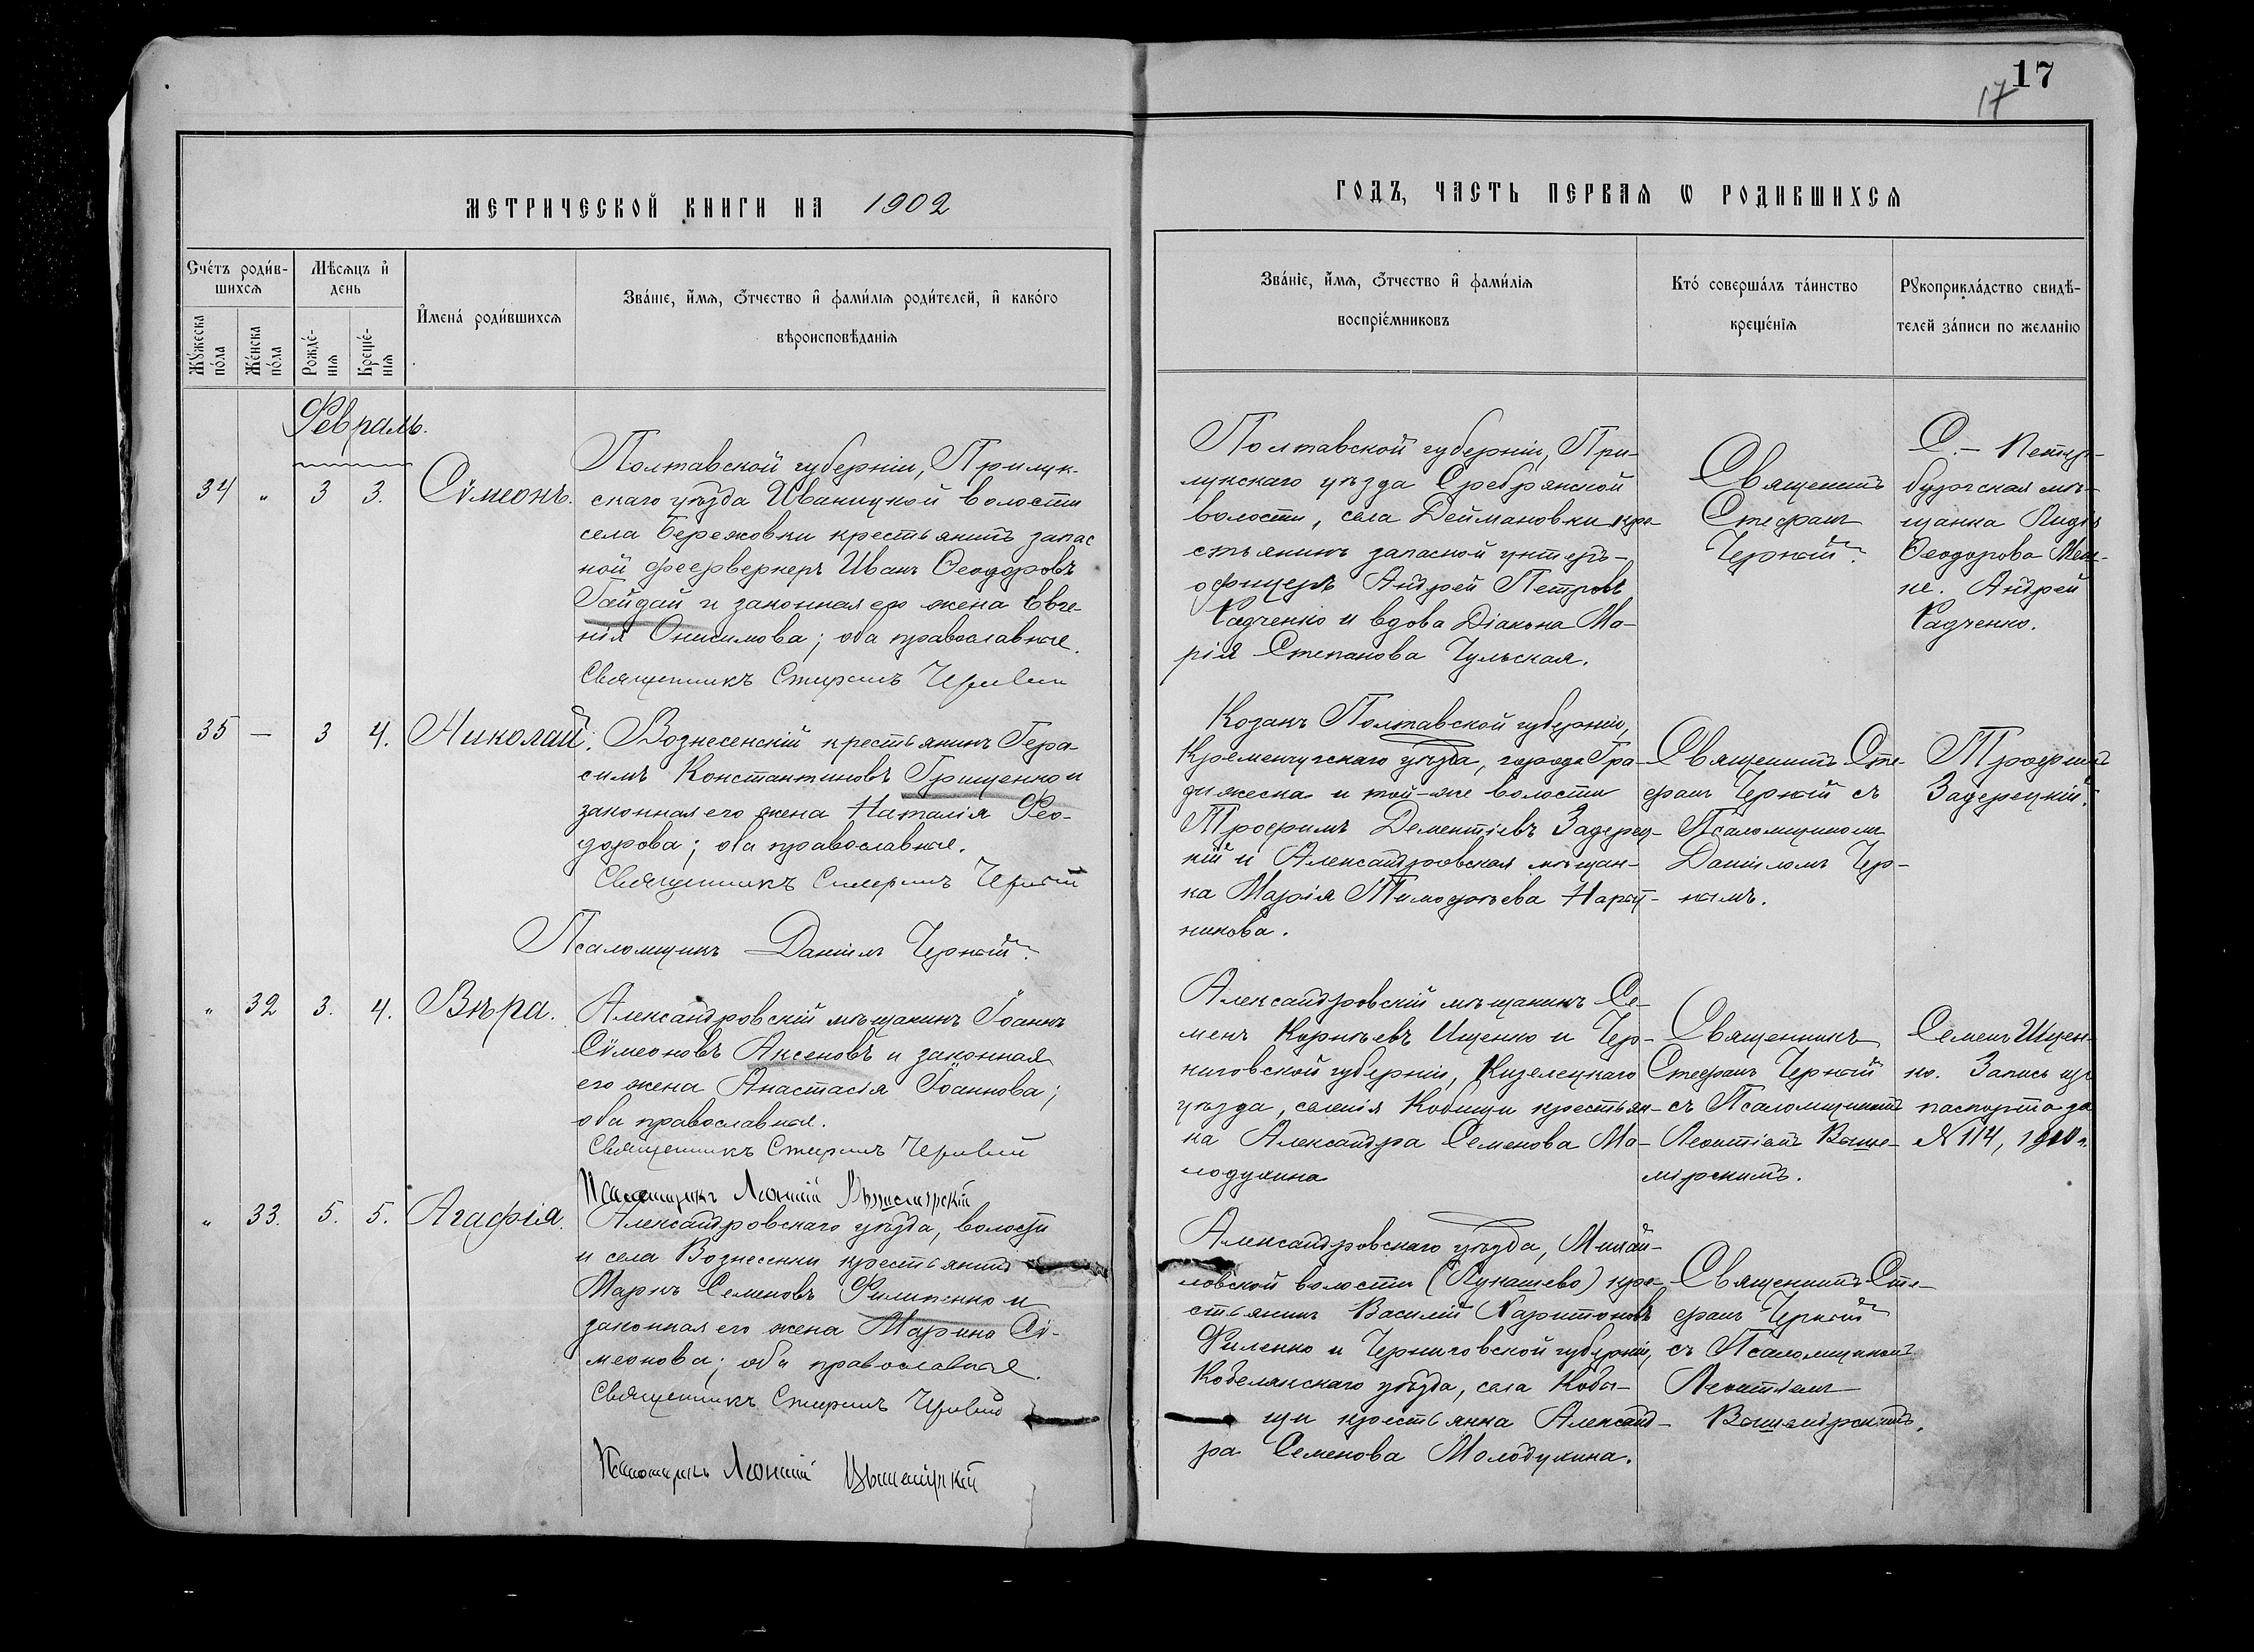 17
17
МЕТРИЧЕСКОЙ КНИГИ НА 1902
ГОДЪ, ЧАСТЬ ПЕРВАЯ Ѡ РОДИВШИХСЯ
Счетъ родив-
шихся
Мѣсяцъ и
день
Мужеска
пола
Женска
пола
Рожде-
нія
Креще-
нія
Имена родившихся
Званіе, имя, отчество и фамилія родителей, и какого
вѣроисповѣданія
Званіе, имя, отчество и фамилія
воспріемниковъ
Кто совершалъ таинство
крещенія
Рукоприкладство свидѣ-
телей записи по желанію
Февраль.
34 „ 3 3. Сѵмеонъ.
Полтавской губерніи, Прилук-
скаго уѣзда Иваницкой волости
села Бережовки крестьянинъ запас
ной фейерверкеръ Иванъ Ѳеодоровъ
Гайдай и законная его жена Евге-
нія Онисимова; оба православные.
Священникъ Стефанъ Черный
Полтавской губерніи, При-
лукскаго уѣзда Сребрянской
волости, села Деймановки кре-
стьянинъ запасной унтеръ-
офицеръ Андрей Петровъ
Радченко и вдова Діакона Ма-
рія Степанова Тульская.
Священникъ
Стефанъ
Черный.
С.-Петер-
бургская мѣ-
щанка Лидія
Ѳеодорова
не. Андрей
Радченко.
35 — 3 4. Николай.
Вознесенскій крестьянинъ Гера-
симъ Константиновъ Грищенко и
законная его жена Наталія Ѳео-
дорова; оба православные.
Священникъ Стефанъ Черный
Псаломщикъ Даніилъ Черный.
Козакъ Полтавской губерніи,
Кременчугскаго уѣзда, города Гра-
дижеска и той-же волости
Трофимъ Дементіевъ Задерец-
кій и Александровская мѣщан-
ка Марія Тимофѣева
никова.
Священникъ Сте-
фанъ Черный съ
Псаломщикомъ
Даніиломъ Чер-
нымъ.
Трофимъ
Задерецкій.
„ 32 3. 4. Вѣра.
Александровскій мѣщанинъ Іоаннъ
Сѵмеоновъ Аксеновъ и законная
его жена Анастасія Іоаннова;
оба православные.
Священникъ Стефанъ Черный
Псаломщикъ Леонтій Вышемірскій
Александровскій мѣщанинъ Се-
менъ Корнѣевъ Ищенко и Чер-
ниговской губерніи, Козелецкаго
уѣзда, селенія Кобыщи крестьян-
ка Александра Семенова Мо-
лодукина
Священникъ
Стефанъ Черный
съ Псаломщикомъ
Леонтіемъ Выше-
мірскимъ.
Семенъ Ищен-
ко. Запись изъ
паспорта за
№ 114, 1900 г.
„ 33. 5. 5. Агафія.
Александровскаго уѣзда, волости
и села Вознесенки крестьянинъ
Маркъ Семеновъ Филипенко и
законная его жена Марина Сѵ-
меонова; оба православные.
Священникъ Стефанъ Черный
Псаломщикъ Леонтій Вышемірскій
Александровскаго уѣзда, Михай-
ловской волости (Лукашево) кре-
стьянинъ Василій Харитоновъ
Филенко и Черниговской губерніи,
Кобелякскаго уѣзда, села Кобы-
щи крестьянка Александ-
ра Семенова Молодукина.
Священникъ Сте-
фанъ Черный
съ Псаломщикомъ
Леонтіемъ
Вышемірскимъ.